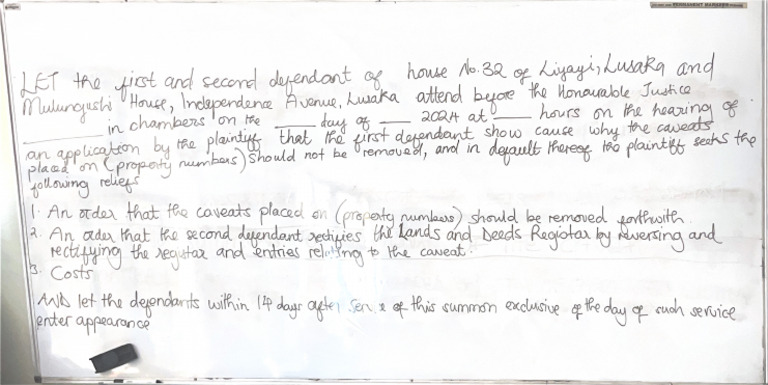 LET the first and second defendant of house No. 32 of Liyayi, Lusaka and
Mulungushi House, Independence Avenue, Lusaka attend before the Honourable Justice
______ in chambers on the _____ day of ____ 2024 at _____ hours on the hearing of
an application by the plaintiff that the first defendant show cause why the caveats
placed on (property numbers) should not be removed, and in default thereof the plaintiff seeks the
following reliefs
1. An order that the caveats placed on (property numbers) should be removed forthwith.
2. An order that the second defendant rectifies the Lands and Deeds Registar by reversing and
rectifying the registar and entries relating to the caveat.
3. Costs
AND let the defendants within 14 days after service of this summon exclusive of the day of such service
enter appearance
PERMANENT MARKER